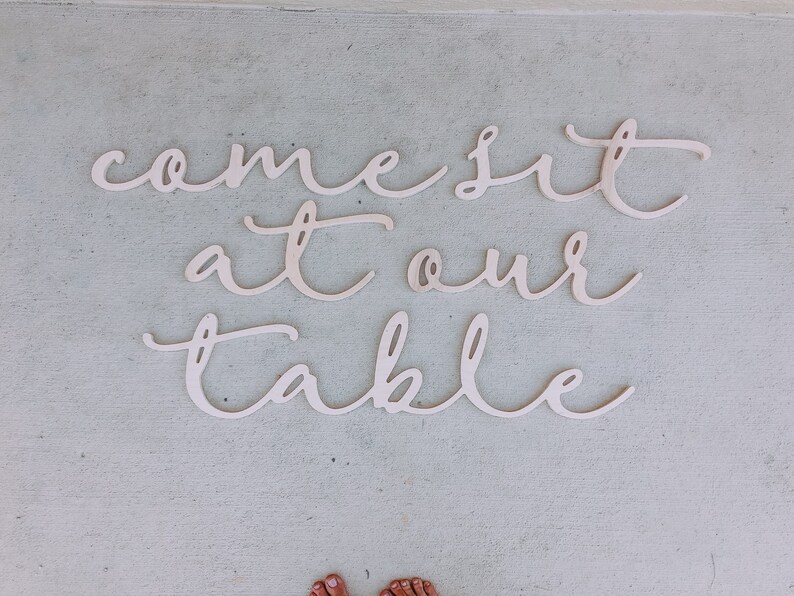 come sit
at our
table